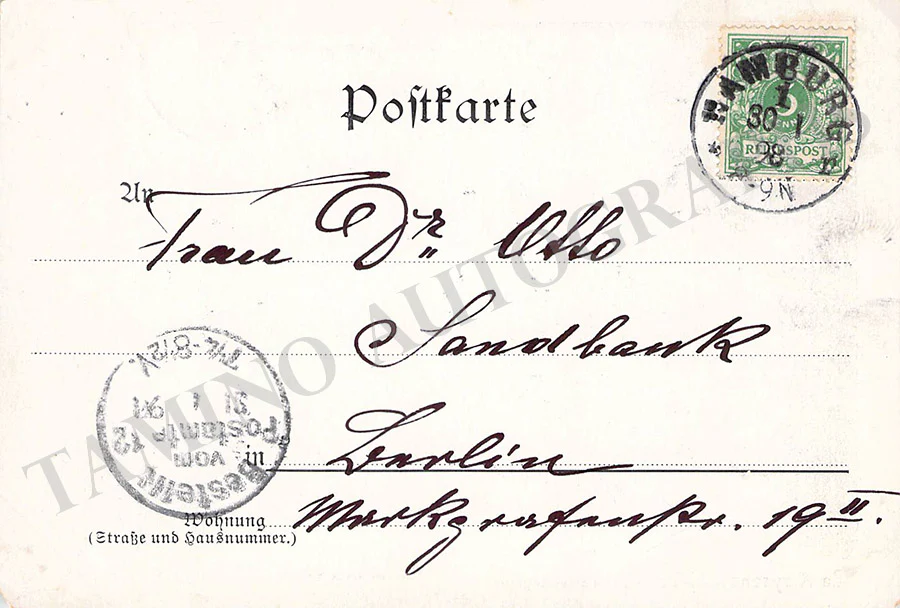 Postkarte
HAMBURG
1
30 1
98
8-9N
5
REICHSPOST
An
Frau Dr. Otto
Sandbank
in Berlin
Wohnung Markgrafenstr. 19 II.
(Straße und Hausnummer.)
Bestellt
vom
Postamte 12
31 1 98
7¼-8½V.
TAMINO AUTOGRAPHS